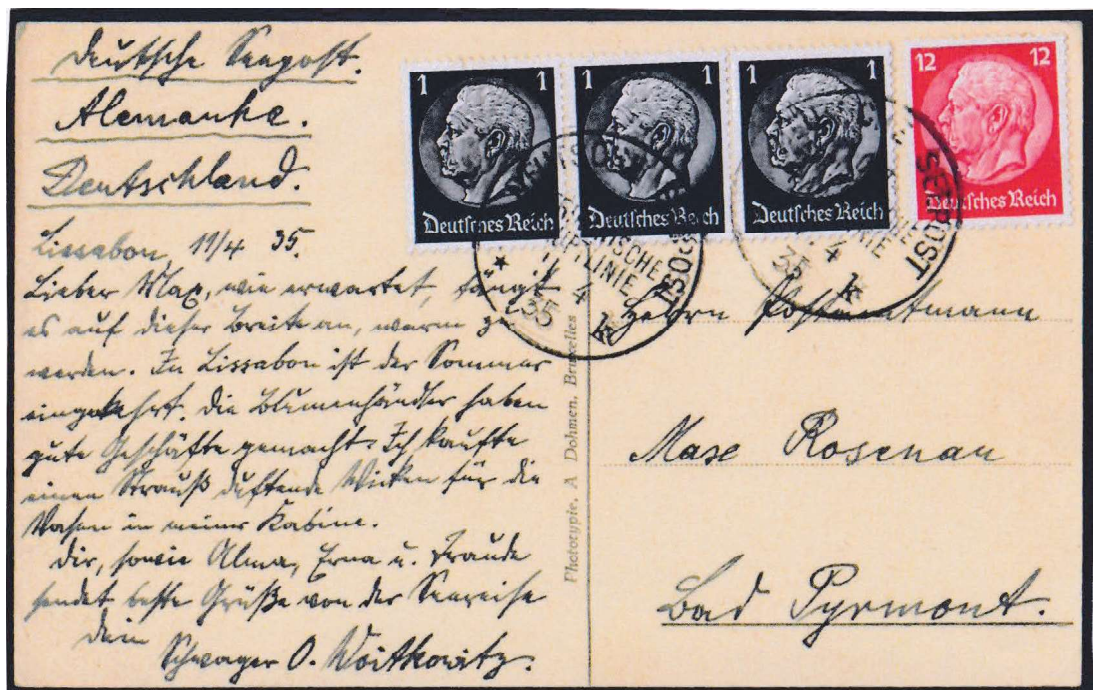 Deutsche Seepost.
Alemanha.
Deutschland.
Lissabon, 11/4 35.
Lieber Max, wie erwartet, fängt
es auf dieser Breite an, warm zu
werden. In Lissabon ist der Sommer
eingekehrt. Die Blumenhändler haben
gute Geschäfte gemacht. Ich kaufte
einen Strauß duftende Wicken für die
Vasen in meiner Kabine.
Dir, sowie Alma, Erna u. Traude
sendet beste Grüße von der Seereise
Dein
Schwager O. Woitkowitz.
1 1
Deutsches Reich
1 1
Deutsches Reich
1 1
Deutsches Reich
12 12
Deutsches Reich
DEUTSCHE SEEPOST
LINIE
11 4
35
k
SEEPOST
LINIE
4
35
k
Phototypie. A Dohmen, Bruxelles
Herrn Postamtmann
Max Rosenau
Bad Pyrmont.